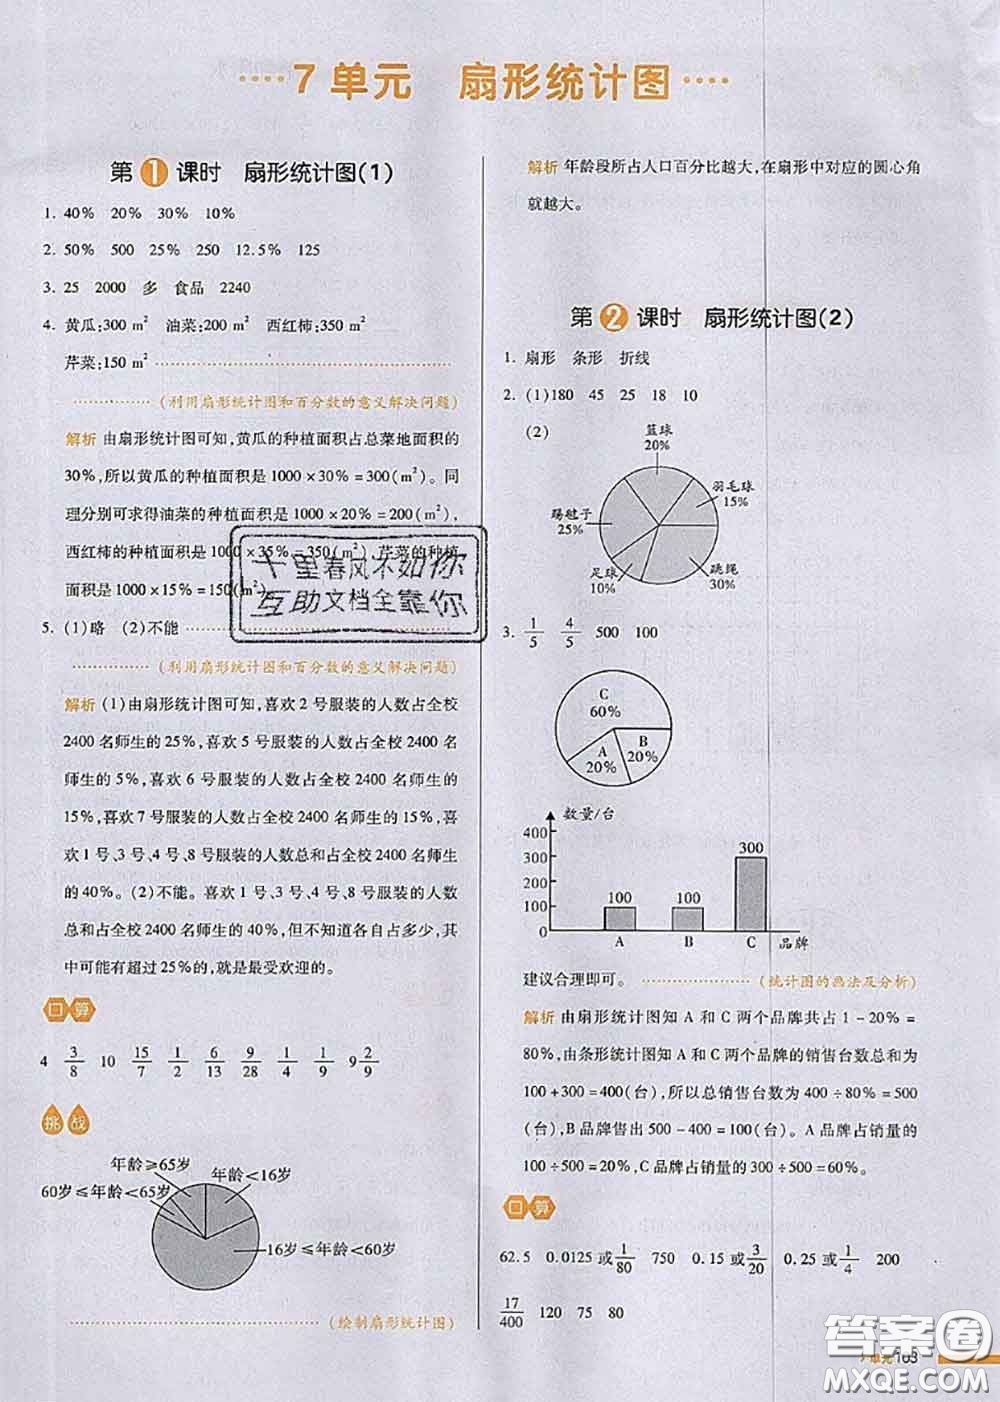 7 单元 扇形统计图
第 1 课时 扇形统计图(1)
1. 40% 20% 30% 10%
2. 50% 500 25% 250 12.5% 125
3. 25 2000 多 食品 2240
4. 黄瓜:300 m² 油菜:200 m² 西红柿:350 m²
芹菜:150 m²
(利用扇形统计图和百分数的意义解决问题)
解析 由扇形统计图可知,黄瓜的种植面积占总菜地面积的
30%,所以黄瓜的种植面积是 1000×30%=300(m²)。同
理分别可求得油菜的种植面积是 1000×20%=200(m²),
西红柿的种植面积是 1000×35%=350(m²),芹菜的种植
面积是 1000×15%=150(m²)。
5. (1)略 (2)不能
(利用扇形统计图和百分数的意义解决问题)
解析 (1)由扇形统计图可知,喜欢 2 号服装的人数占全校
2400 名师生的 25%,喜欢 5 号服装的人数占全校 2400 名
师生的 5%,喜欢 6 号服装的人数占全校 2400 名师生的
15%,喜欢 7 号服装的人数占全校 2400 名师生的 15%,喜
欢 1 号、3 号、4 号、8 号服装的人数总和占全校 2400 名师生
的 40%。(2)不能。喜欢 1 号、3 号、4 号、8 号服装的人数
总和占全校 2400 名师生的 40%,但不知道各自占多少,其
中可能有超过 25%的,就是最受欢迎的。
口算
4 3/8 10 15/7 1/2 6/13 9/28 1/14 1/3 9 2/9
挑战
年龄≥65岁
年龄<16岁
60岁≤年龄<65岁
16岁≤年龄<60岁
(绘制扇形统计图)
解析 年龄段所占人口百分比越大,在扇形中对应的圆心角
就越大。
第 2 课时 扇形统计图(2)
1. 扇形 条形 折线
2. (1)180 45 25 18 10
(2)
篮球
20%
羽毛球
15%
踢毽子
25%
足球
10%
跳绳
30%
3. 1/5 4/5 500 100
C
60%
A
20%
B
20%
数量/台
400
300
200
100
0
100
100
300
A B C 品牌
建议合理即可。
(统计图的画法及分析)
解析 由扇形统计图知 A 和 C 两个品牌共占 1-20%=
80%,由条形统计图知 A 和 C 两个品牌的销售台数总和为
100+300=400(台),所以总销售台数为 400÷80%=500
(台),B 品牌售出 500-400=100(台)。A 品牌占销量的
100÷500=20%,C 品牌占销量的 300÷500=60%。
口算
62.5 0.0125 或 1/80 750 0.15 或 3/20 0.25 或 1/4 200
17/400 120 75 80
7 单元 163
十里春风不如你
互助文档全靠你
答案圈
MXQE.COM